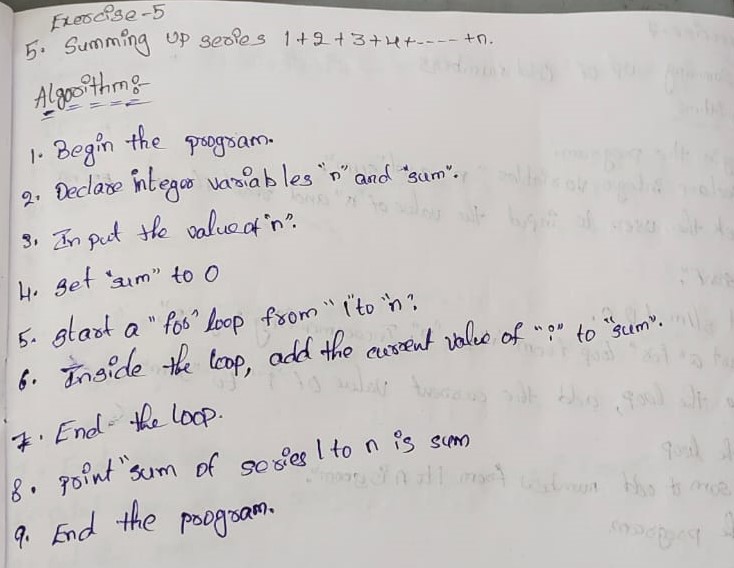 Exercise-5
5. Summing up series 1+2+3+4+----+n.
Algorithm:-
1. Begin the program.
2. Declare integer variables "n" and "sum".
3. Input the value of "n".
4. Set "sum" to 0
5. Start a "for" loop from "1" to "n".
6. Inside the loop, add the current value of "i" to "sum".
7. End the loop.
8. Print "sum of series 1 to n is sum
9. End the program.